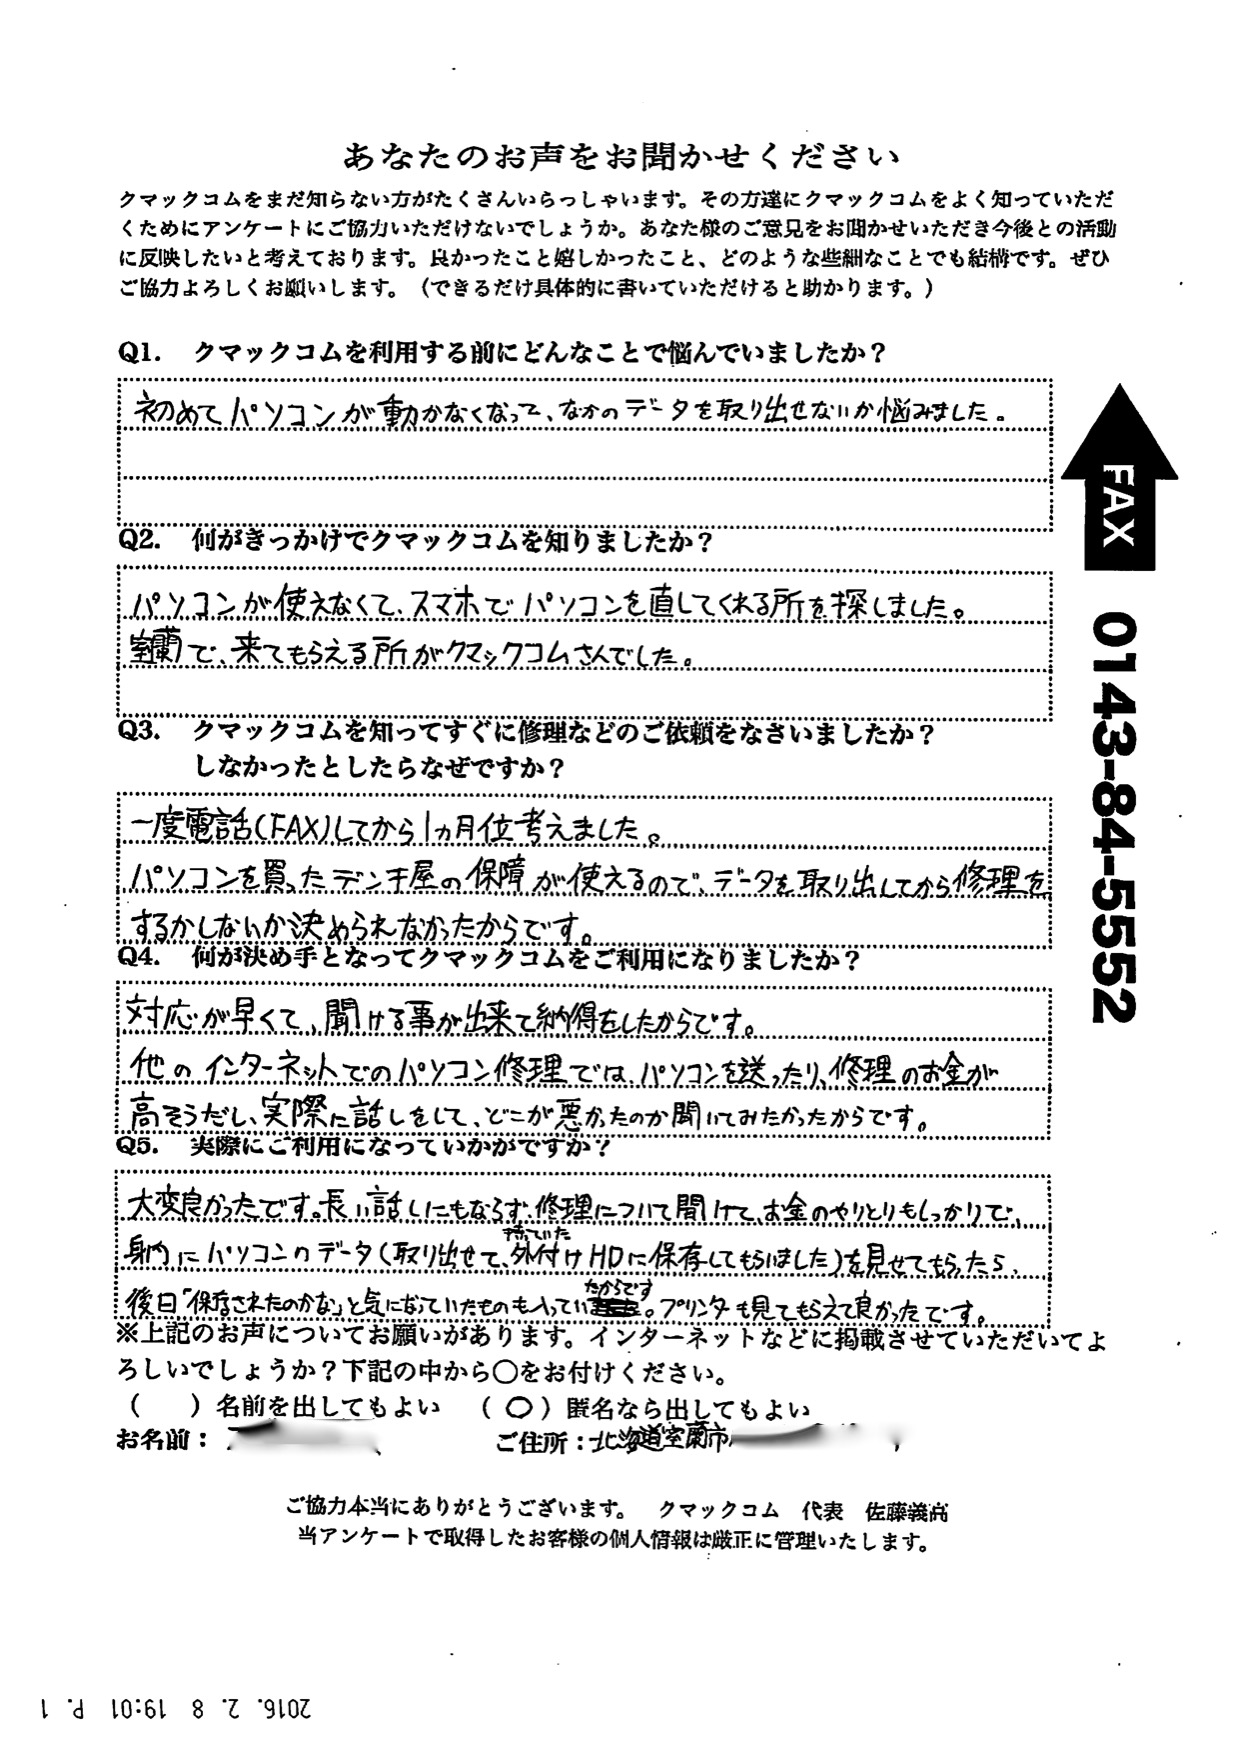 あなたのお声をお聞かせください
クマックコムをまだ知らない方がたくさんいらっしゃいます。その方達にクマックコムをよく知っていただ
くためにアンケートにご協力いただけないでしょうか。あなた様のご意見をお聞かせいただき今後との活動
に反映したいと考えております。良かったこと嬉しかったこと、どのような些細なことでも結構です。ぜひ
ご協力よろしくお願いします。（できるだけ具体的に書いていただけると助かります。）
Q1. クマックコムを利用する前にどんなことで悩んでいましたか？
初めてパソコンが動かなくなって、なかのデータを取り出せないか悩みました。
Q2. 何がきっかけでクマックコムを知りましたか？
パソコンが使えなくて、スマホでパソコンを直してくれる所を探しました。
室蘭で、来てもらえる所がクマックコムさんでした。
Q3. クマックコムを知ってすぐに修理などのご依頼をなさいましたか？
しなかったとしたらなぜですか？
一度電話(FAX)してから1ヵ月位考えました。
パソコンを買ったデンキ屋の保障が使えるので、データを取り出してから修理を
するかしないか決められなかったからです。
Q4. 何が決め手となってクマックコムをご利用になりましたか？
対応が早くて、聞ける事が出来て納得をしたからです。
他のインターネットでのパソコン修理では、パソコンを送ったり、修理のお金が
高そうだし、実際に話しをして、どこが悪かったのか聞いてみたかったからです。
Q5. 実際にご利用になっていかがですか？
大変良かったです。長い話しにもならず、修理について聞けて、お金のやりとりもしっかりで、
持っていた
身内にパソコンのデータ(取り出せて、外付けHDに保存してもらいました)を見せてもらったら、
たからです
後日「保存されたのかな」と気になっていたものも入ってい。プリンタも見てもらえて良かったです。
※上記のお声についてお願いがあります。インターネットなどに掲載させていただいてよ
ろしいでしょうか？下記の中から〇をお付けください。
（　）名前を出してもよい　（〇）匿名なら出してもよい
お名前：　ご住所：北海道室蘭市
ご協力本当にありがとうございます。　クマックコム　代表　佐藤義尚
当アンケートで取得したお客様の個人情報は厳正に管理いたします。
FAX 0143-84-5552
2016. 2. 8 19:01 P. 1